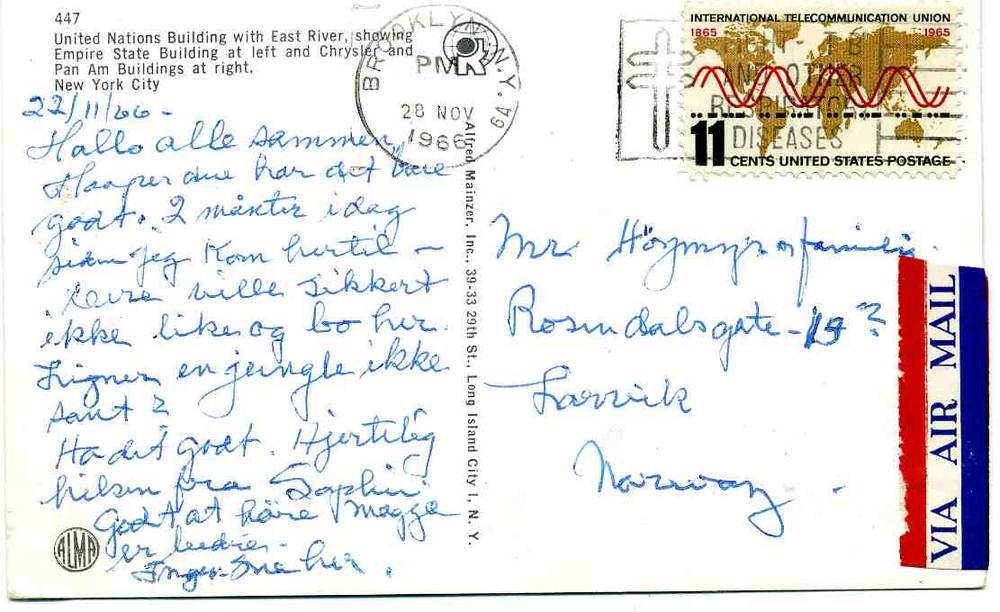 447
United Nations Building with East River, showing
Empire State Building at left and Chrysler and
Pan Am Buildings at right.
New York City
BROOKLYN, N.Y.
PM
28 NOV
1966
AND OTHER
RESPIRATORY
DISEASES
INTERNATIONAL TELECOMMUNICATION UNION
1865 1965
11 CENTS UNITED STATES POSTAGE
/11/66 -
Hallo alle sammen,
Haaper har det bare
godt. 2 månter idag
siden jeg Kom hertil -
ville sikkert
ikke like og bo her.
Ligner en jungle ikke
sant?
Ha det godt. Hjertelig
hilsen fra Sophie.
Godt at høre Magga
er bedre.
Inger her.
Alfred Mainzer, Inc., 39-33 29th St., Long Island City 1, N. Y.
ALMA
Mr. familie.
Rosendalsgate -
Larvik
Norway -
VIA AIR MAIL